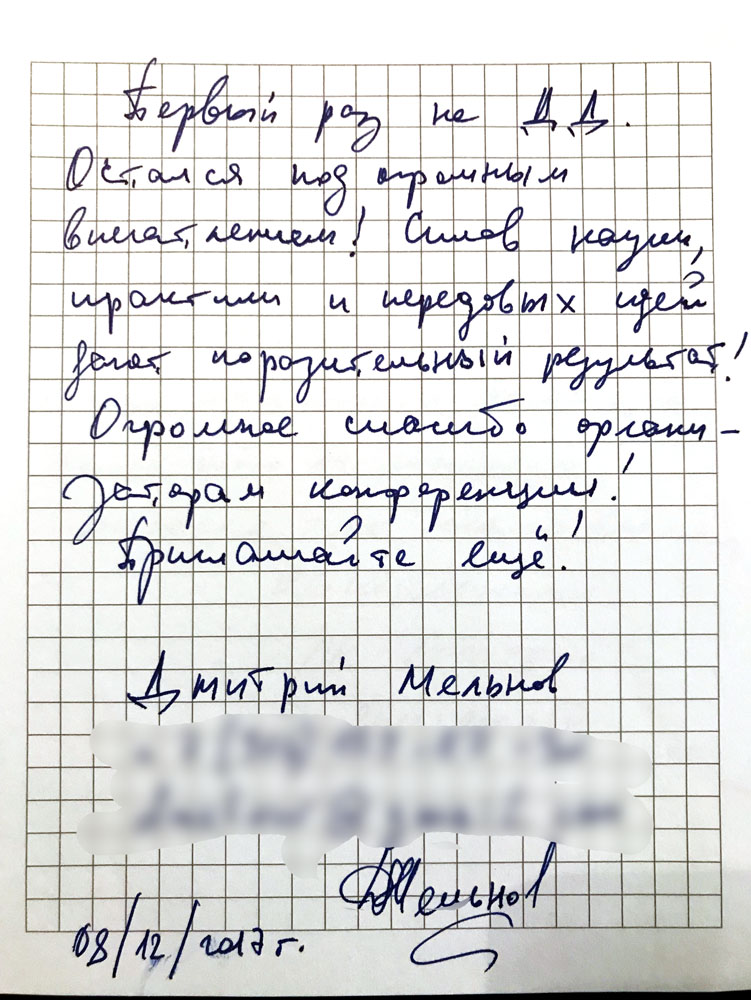 Первый раз на Д.Д.
Остался под огромным
впечатлением! Сплав науки,
практики и передовых идей
дают поразительный результат!
Огромное спасибо органи-
заторам конференции!
Приглашайте ещё!
Дмитрий Мельнов
ДМельнов
08/12/2017 г.